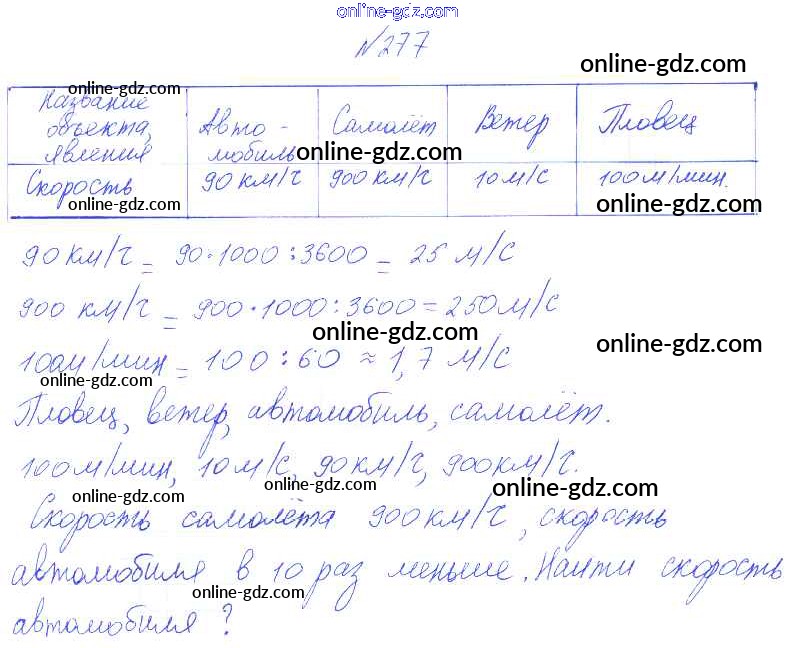 online-gdz.com
№277
online-gdz.com
online-gdz.com
Название объекта, явления | Авто-мобиль | Самолёт | Ветер | Пловец
online-gdz.com
Скорость | 90 км/ч | 900 км/ч | 10 м/с | 100 м/мин.
online-gdz.com online-gdz.com
90 км/ч = 90·1000:3600 = 25 м/с
900 км/ч = 900·1000:3600 = 250 м/с
online-gdz.com online-gdz.com
100м/мин = 100:60 ≈ 1,7 м/с
online-gdz.com
Пловец, ветер, автомобиль, самолёт.
100м/мин, 10м/с, 90км/ч, 900км/ч.
online-gdz.com online-gdz.com online-gdz.com
Скорость самолёта 900км/ч, скорость
автомобиля в 10 раз меньше. Найти скорость
online-gdz.com
автомобиля?